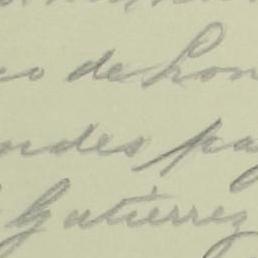 co de Lon
ndes pa
Gutiérrez